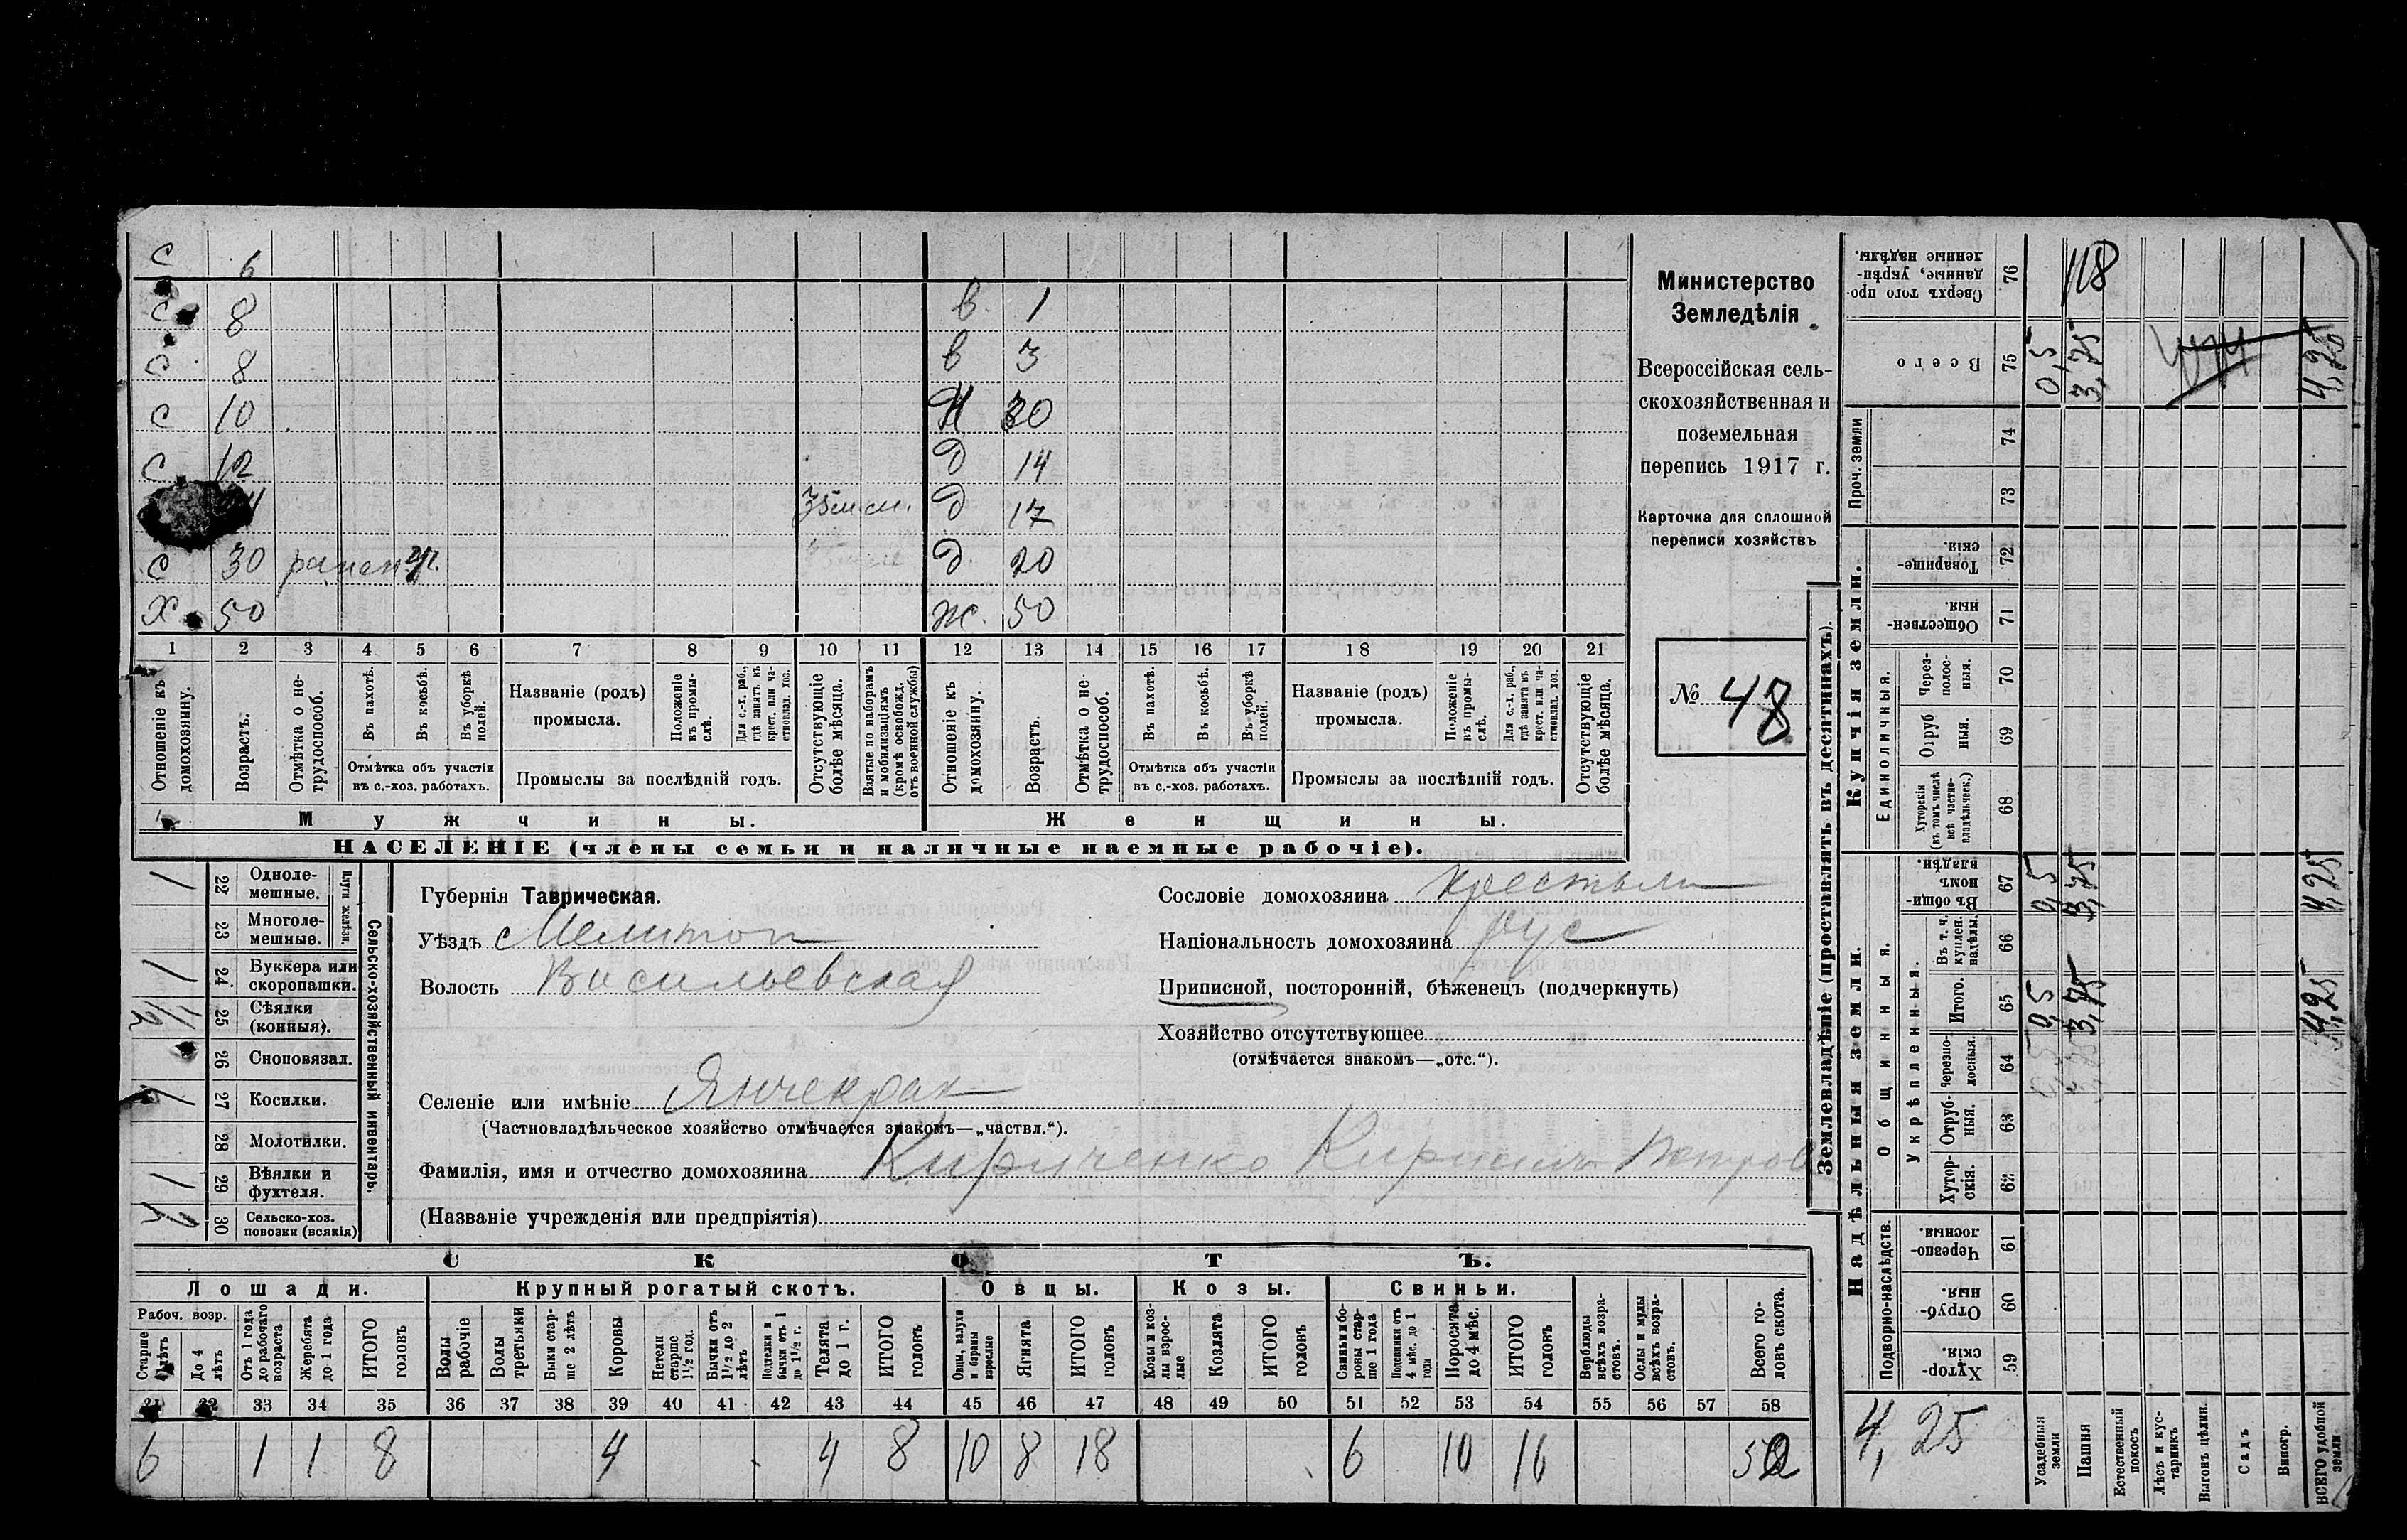 С 6
С 8 в. 1
С 8 в 3
С 10 Н 30
С 12 д 14
д 17
С 30 ранен д. 20
Х 50 ж. 50
1 2 3 4 5 6 7 8 9 10 11 12 13 14 15 16 17 18 19 20 21
Отношеніе къ домохозяину.
Возрастъ.
Отмѣтка о нетрудоспособ.
Въ пахотѣ.
Въ косьбѣ.
Въ уборкѣ полей.
Отмѣтка объ участіи въ с.-хоз. работахъ.
Названіе (родъ) промысла.
Положеніе въ промыслѣ.
Для с.-х. раб., гдѣ занятъ въ крест. или частновлад. хоз.
Промыслы за послѣдній годъ.
Отсутствующіе болѣе мѣсяца.
Взятые по наборамъ и мобилизаціямъ (кромѣ освобожд. отъ военной службы)
Отношеніе къ домохозяину.
Возрастъ.
Отмѣтка о нетрудоспособ.
Въ пахотѣ.
Въ косьбѣ.
Въ уборкѣ полей.
Отмѣтка объ участіи въ с.-хоз. работахъ.
Названіе (родъ) промысла.
Положеніе въ промыслѣ.
Для с.-х. раб., гдѣ занята въ крест. или частновлад. хоз.
Промыслы за послѣдній годъ.
Отсутствующіе болѣе мѣсяца.
Мужчины.
Женщины.
НАСЕЛЕНІЕ (члены семьи и наличные наемные рабочіе).
Министерство
Земледѣлія
Всероссійская сель-
скохозяйственная и
поземельная
перепись 1917 г.
Карточка для сплошной
переписи хозяйствъ
№ 48
Сельско-хозяйственный инвентарь.
Плуги желѣзн.
1 22 Однолемешные.
23 Многолемешные.
1 24 Буккера или скоропашки.
25 Сѣялки (конныя).
26 Сноповязал.
1 27 Косилки.
28 Молотилки.
1 29 Вѣялки и фухтеля.
2 30 Сельско-хоз. повозки (всякія)
Губернія Таврическая.
Уѣздъ Мелитоп
Волость Васильевская
Селеніе или имѣніе Янчекрак
(Частновладѣльческое хозяйство отмѣчается знакомъ—„частвл.“).
Фамилія, имя и отчество домохозяина Кириченко Кирилл Петров
(Названіе учрежденія или предпріятія)
Сословіе домохозяина крестьян
Національность домохозяина рус
Приписной, посторонній, бѣженецъ (подчеркнуть)
Хозяйство отсутствующее
(отмѣчается знакомъ—„отс.“).
СКОТЪ.
Лошади.
Крупный рогатый скотъ.
Овцы.
Козы.
Свиньи.
Рабоч. возр.
Старше 4 лѣтъ
До 4 лѣтъ
Отъ 1 года до рабочаго возраста
Жеребята до 1 года
ИТОГО головъ
Волы рабочіе
Волы третьяки
Быки старше 2 лѣтъ
Коровы
Нетели старше 1½ год.
Бычки отъ 1½ до 2 лѣтъ
Подтелки и бычки отъ 1 до 1½ г.
Телята до 1 г.
ИТОГО головъ
Овцы, валухи и бараны взрослые
Ягнята
ИТОГО головъ
Козы и козлы взрослые
Козлята
ИТОГО головъ
Свиньи и боровы старше 1 года
Подсвинки отъ 4 мѣс. до 1 года
Поросята до 4 мѣс.
ИТОГО головъ
Верблюды всѣхъ возрастовъ.
Ослы и мулы всѣхъ возрастовъ.
Всего головъ скота.
31 32 33 34 35 36 37 38 39 40 41 42 43 44 45 46 47 48 49 50 51 52 53 54 55 56 57 58
6 1 1 8 4 4 8 10 8 18 6 10 16 50
Землевладѣніе (проставлять въ десятинахъ).
Надѣльныя земли.
Купчія земли.
Проч. земли
Подворно-наслѣдств.
Общинныя.
Укрѣпленныя.
Единоличныя.
59 Хуторскія.
60 Отрубныя.
61 Черезполосныя.
62 Хуторскія.
63 Отрубныя.
64 Черезполосныя.
65 Итого. 0,5 3,75 4,25
66 Въ т. ч. куплен. надѣлы.
67 Въ общинномъ владѣн. 0,5 3,75 4,25
68 Хуторскія (въ томъ числѣ всѣ частновладѣльческ.)
69 Отрубныя.
70 Черезполосныя.
71 Общественныя.
72 Товарищескія.
73
74
75 Всего 0,5 3,75 4,25
76 Сверхъ того проданные, укрѣпленные надѣлы. 118
4,25
Усадебныя земли
Пашня
Естественный покосъ
Лѣсъ и кустарникъ
Выгонъ цѣлин.
Садъ
Виногр.
ВСЕГО удобной земли